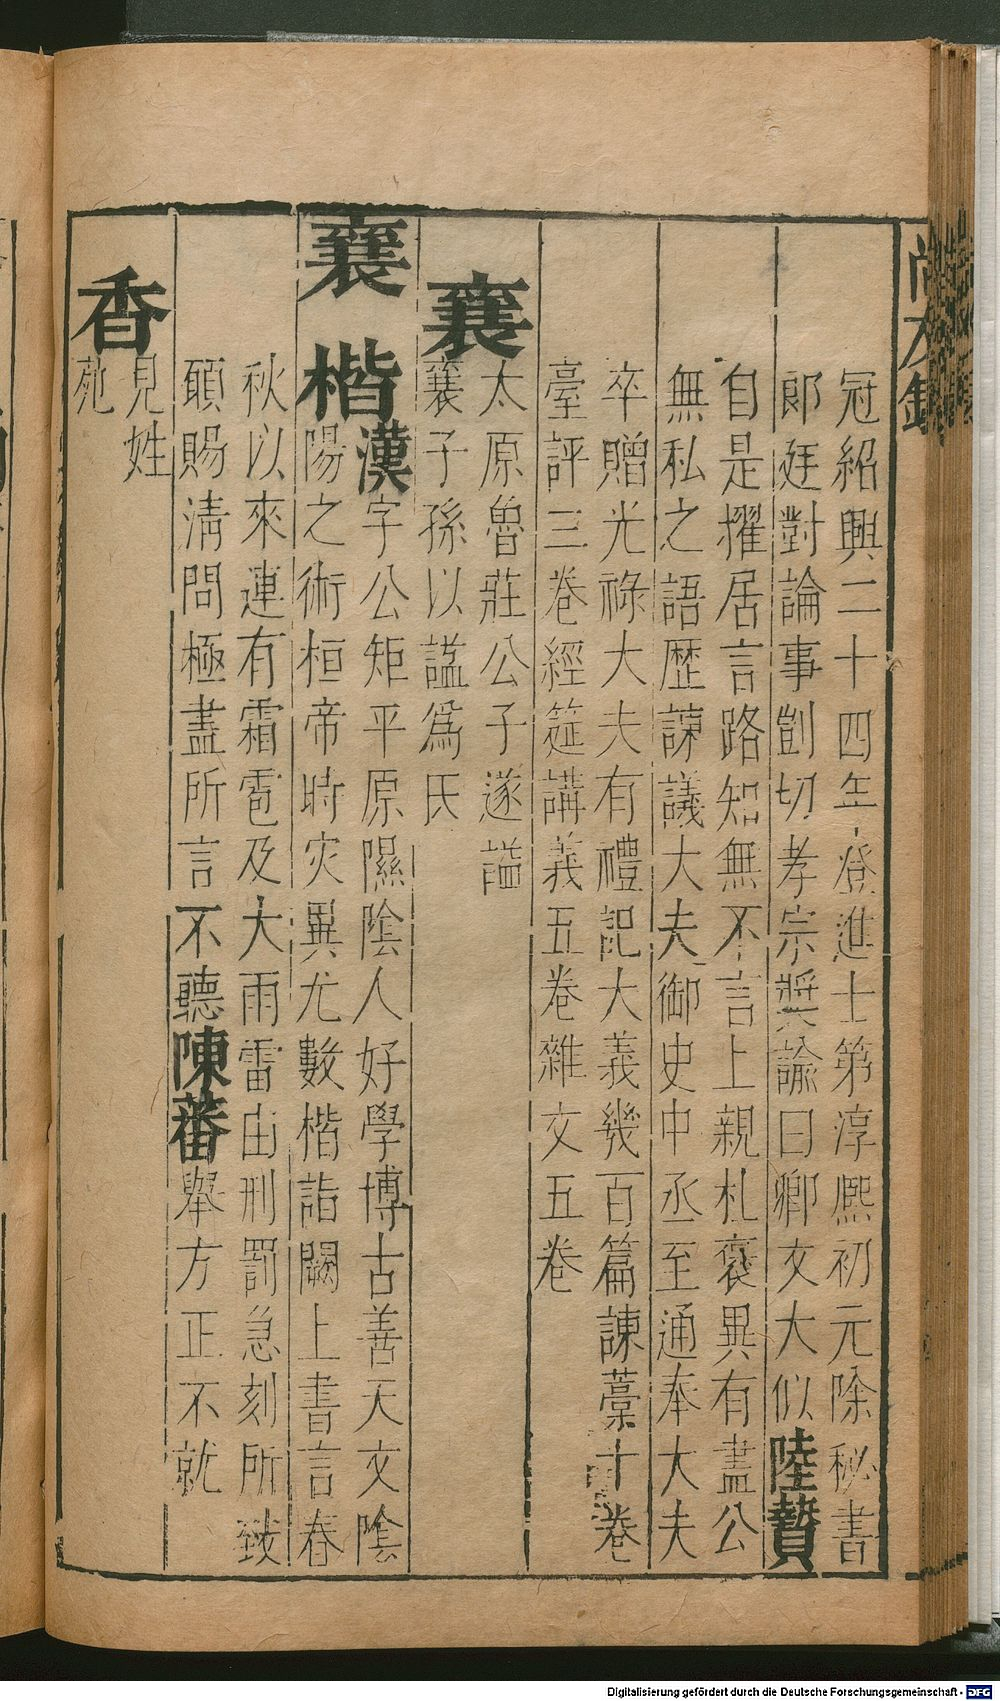 冠紹興二十四年登進士第淳熈初元除秘書
郎廷對論事剴切孝宗奬諭曰卿文大似陸贄
自是擢居言路知無不言上親札褒異有盡公
無私之語歴諫議大夫御史中丞至通奉大夫
卒贈光祿大夫有禮記大義幾百篇諫藁十卷
臺評三卷經筵講義五卷雜文五卷
襄
太原魯莊公子遂謚
襄子孫以謚爲氏
襄楷漢字公矩平原隰陰人好學博古善天文陰
陽之術桓帝時灾異尤數楷詣闕上書言春
秋以來連有霜雹及大雨雷由刑罰急刻所致
願賜淸問極盡所言不聽陳蕃舉方正不就
香
見姓
苑
Digitalisierung gefördert durch die Deutsche Forschungsgemeinschaft - DFG